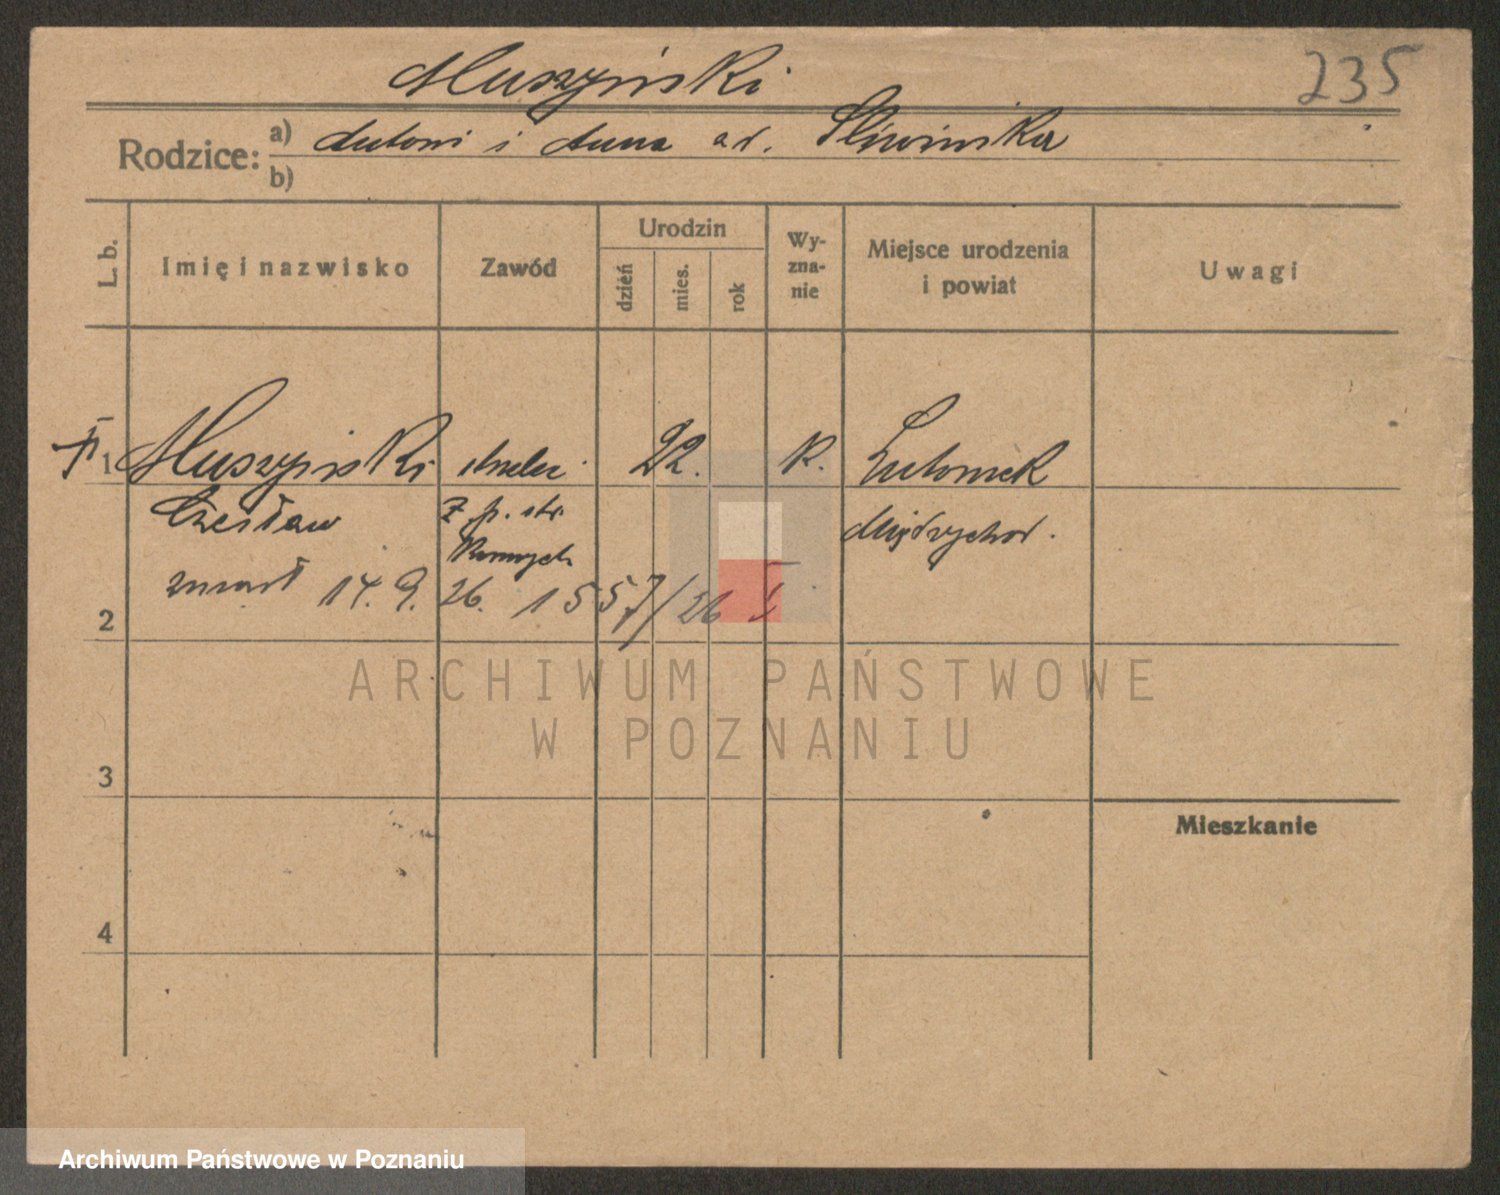 Muszyński
235
Rodzice: a) Antoni i Anna ur. Śliwińska
b)
L. b.
Imię i nazwisko
Zawód
Urodzin
dzień
mies.
rok
Wy-
zna-
nie
Miejsce urodzenia
i powiat
Uwagi
1 Muszyński strzelec 22. k. Lutomek
Czesław 7 p. str. Międzychod.
Konnych
zmarł 14. 9. 26. 1557/26 I
2
ARCHIWUM PAŃSTWOWE
W POZNANIU
3
Mieszkanie
4
Archiwum Państwowe w Poznaniu